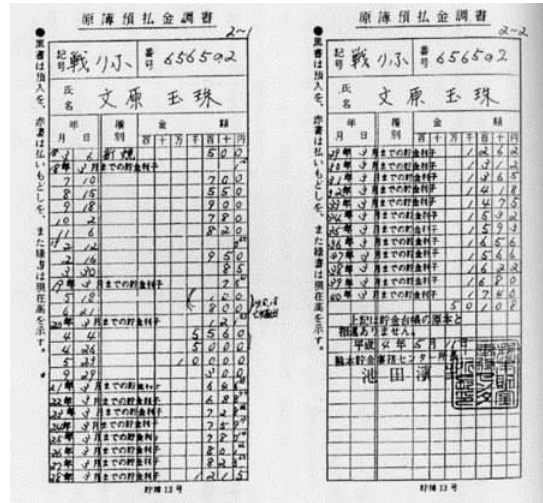 原簿預払金調書
2~1
●黒書は預入を、赤書は払いもどしを、また緑書は現在高を示す。
記号 戦りふ 番号 656592
氏名 文原 玉珠
年 月 日 種別 金額
百 十 万 千 百 十 円
18 3 6 新規 500
18年 3月までの貯金利子
7 10 700
8 15 550
9 18 900
10 2 780
11 6 820
2 12
2 16 950
3 30 85
19年 3月までの貯金利子
5 18 100
6 21 800
20年 3月までの貯金利子
4 4 5560
4 26 5000
5 23 10000
9 29 300
21年 3月までの貯金利子
22年 3月までの貯金利子
23年 3月までの貯金利子
24年 3月までの貯金利子
25年 3月までの貯金利子
26年 3月までの貯金利子
27年 3月までの貯金利子
28年 3月までの貯金利子 1215
貯簿13号
原簿預払金調書
2-2
●黒書は預入を、赤書は払いもどしを、また緑書は現在高を示す。
記号 戦りふ 番号 656592
氏名 文原 玉珠
年 月 日 種別 金額
百 十 万 千 百 十 円
29年 3月までの貯金利子 1262
30年 3月までの貯金利子 1312
31年 3月までの貯金利子 1365
32年 3月までの貯金利子 1418
33年 3月までの貯金利子 1475
34年 3月までの貯金利子 1532
35年 3月までの貯金利子 1593
36年 3月までの貯金利子 1656
37年 3月までの貯金利子 1566
38年 3月までの貯金利子 1622
39年 3月までの貯金利子 1680
40年 3月までの貯金利子 1740
50108
上記は貯金台帳の原本と
相違ありません。
平成4年5月11日
熊本貯金事務センター所長
池田
貯簿13号